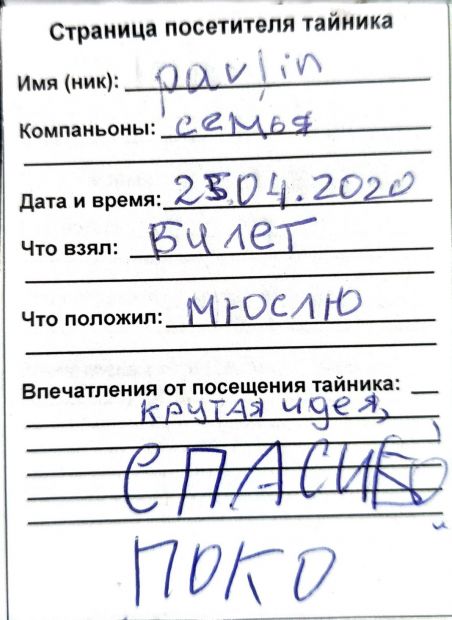 Страница посетителя тайника
Имя (ник): pavlin
Компаньоны: семья
Дата и время: 25.04.2020
Что взял: Билет
Что положил: Мюслю
Впечатления от посещения тайника:
крутая идея,
СПАСИБО
ПОКО